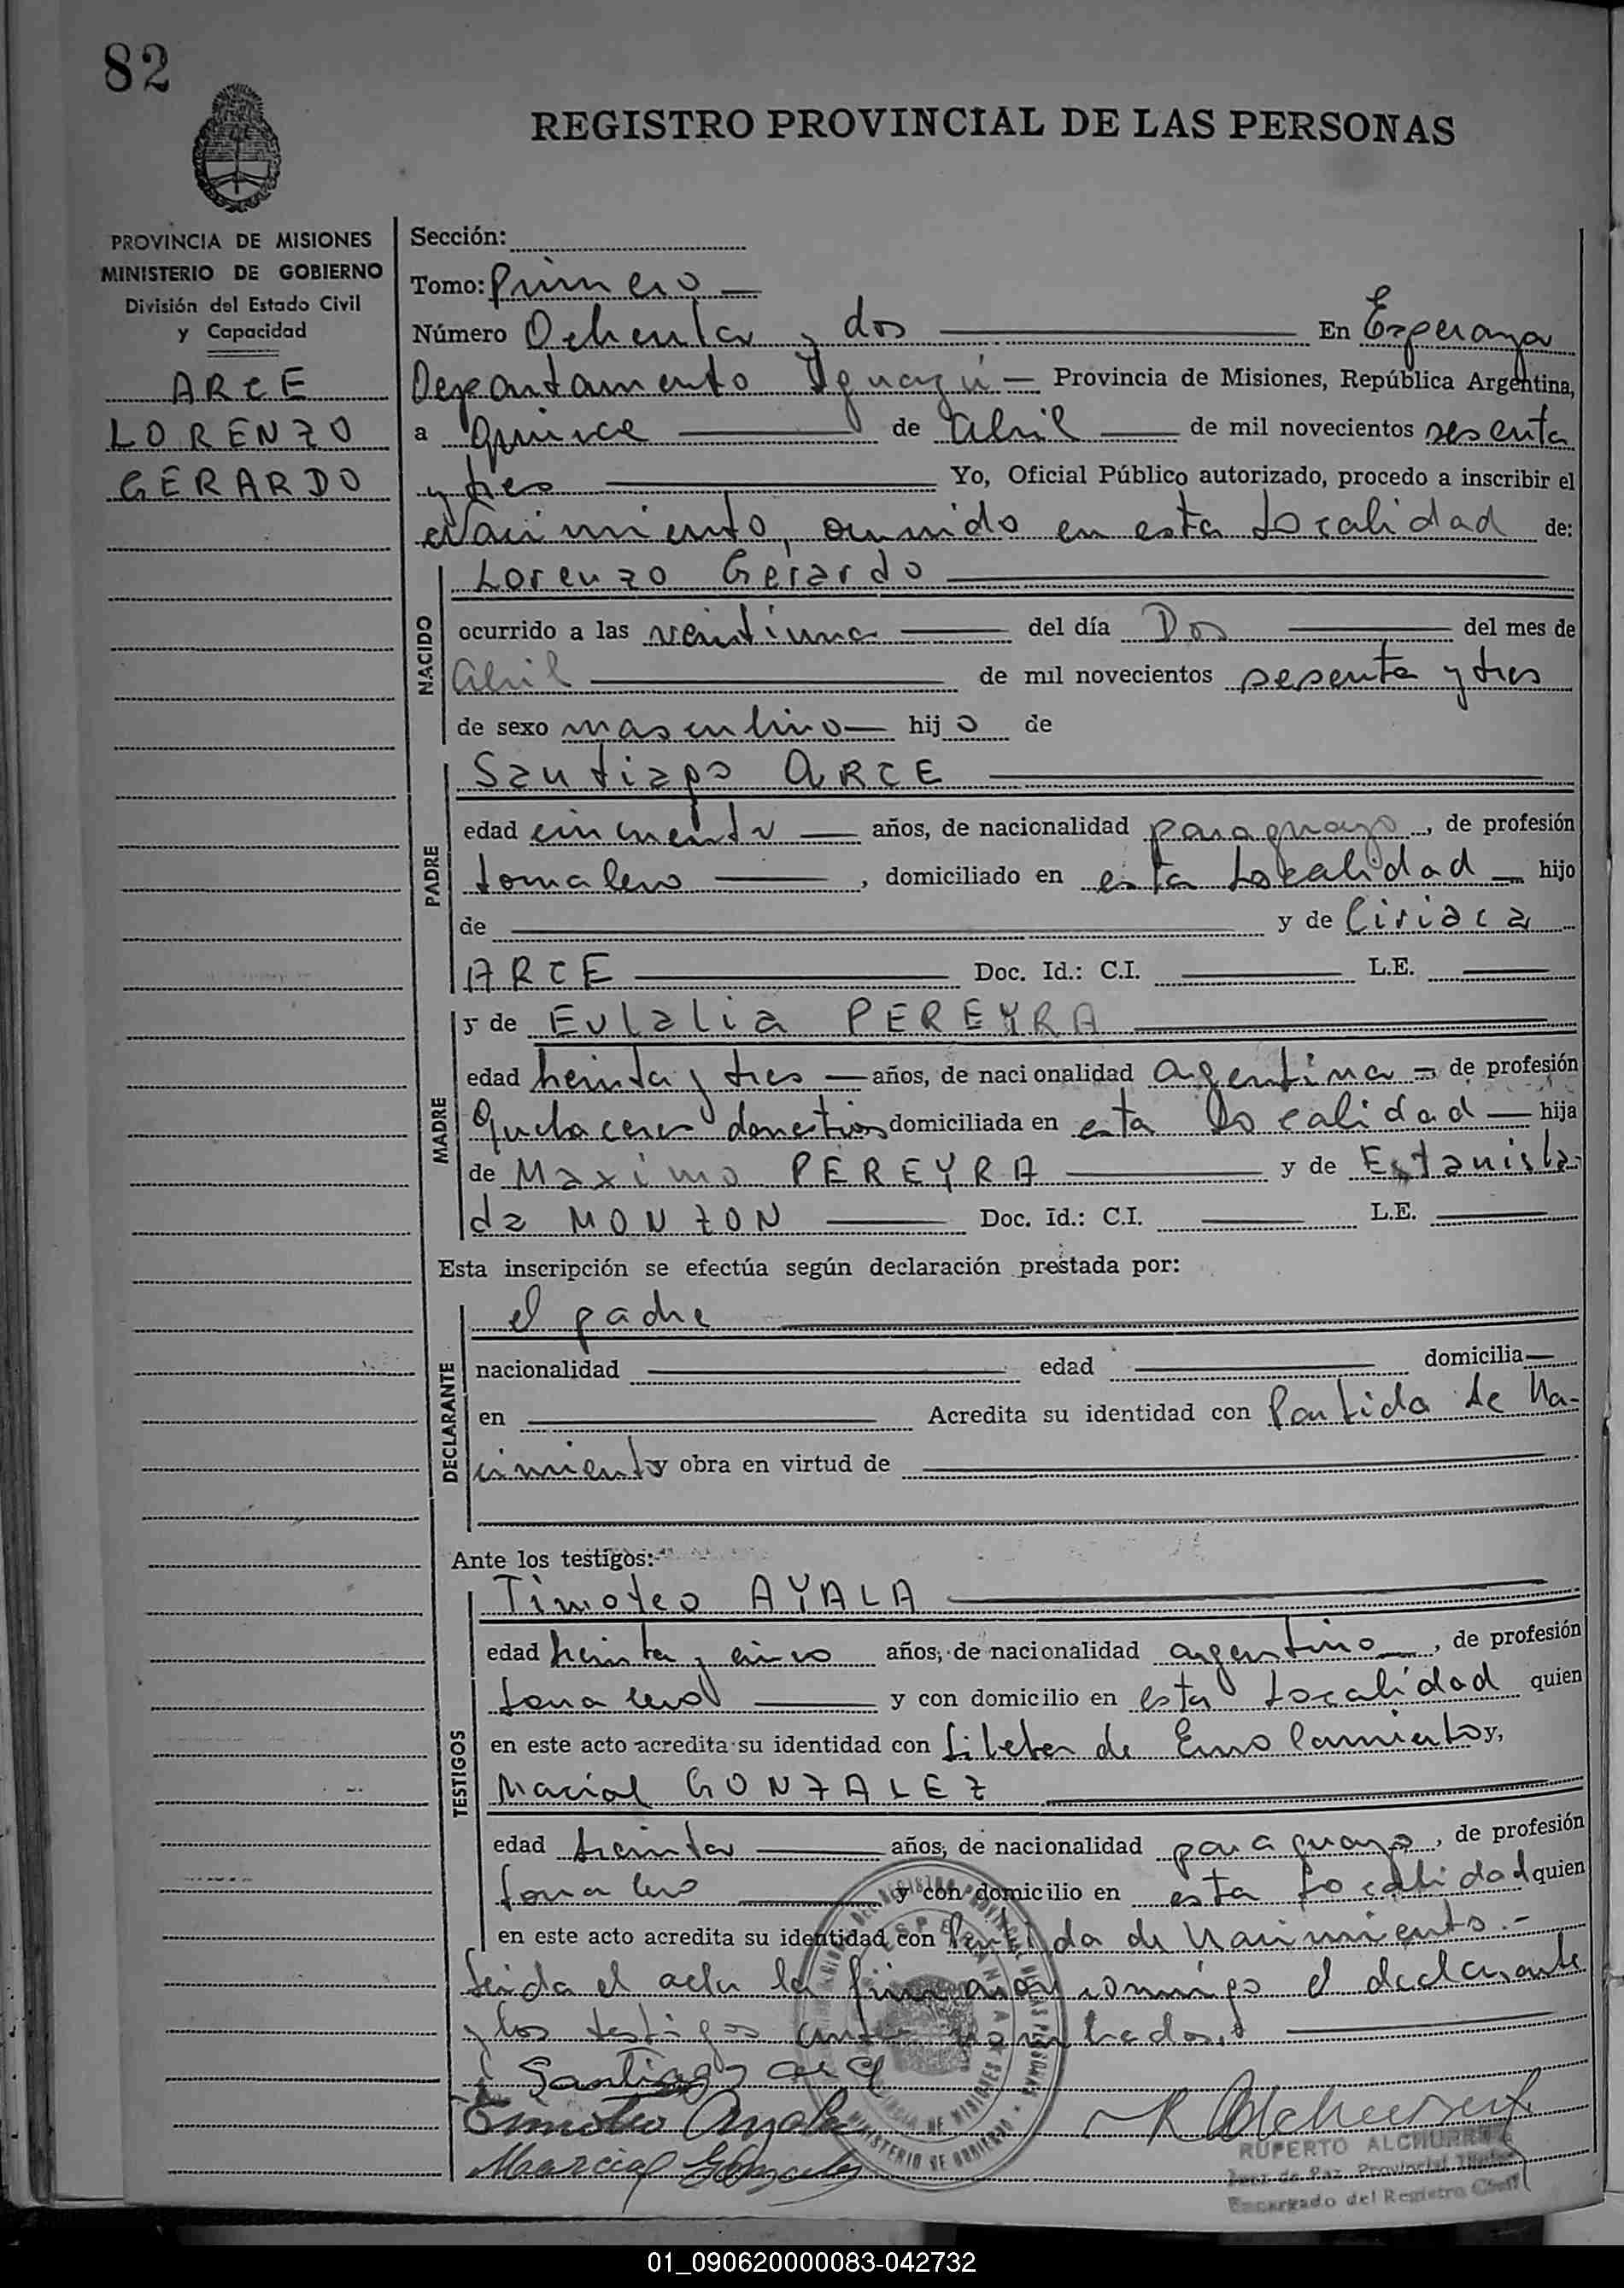 82
REGISTRO PROVINCIAL DE LAS PERSONAS
PROVINCIA DE MISIONES
MINISTERIO DE GOBIERNO
División del Estado Civil
y Capacidad
ARCE
LORENZO
GERARDO
Sección:
Tomo: Primero
Número Ochenta y dos En Esperanza
Departamento Iguazú Provincia de Misiones, República Argentina,
a quince de abril de mil novecientos sesenta
y tres Yo, Oficial Público autorizado, procedo a inscribir el
Nacimiento, ocurrido en esta Localidad de:
NACIDO
Lorenzo Gerardo
ocurrido a las veintiuna del día Dos del mes de
abril de mil novecientos sesenta y tres
de sexo masculino hijo de
PADRE
Santiago ARCE
edad cincuenta años, de nacionalidad paraguayo, de profesión
Jornalero, domiciliado en esta Localidad hijo
de y de Ciriaca
ARCE Doc. Id.: C.I. L.E.
MADRE
y de Eulalia PEREYRA
edad treinta y tres años, de nacionalidad argentina de profesión
Quehaceres domesticos domiciliada en esta Localidad hija
de Maximo PEREYRA y de Estanisla
da MONZON Doc. Id.: C.I. L.E.
Esta inscripción se efectúa según declaración prestada por:
DECLARANTE
el padre
nacionalidad edad domicilia
en Acredita su identidad con Partida de Na-
cimiento y obra en virtud de
Ante los testigos:
TESTIGOS
Timoteo AYALA
edad treinta y cinco años, de nacionalidad argentino, de profesión
Jornalero y con domicilio en esta Localidad quien
en este acto acredita su identidad con Libreta de Enrolamiento y,
Marcial GONZALEZ
edad treinta años, de nacionalidad paraguayo, de profesión
Jornalero y con domicilio en esta Localidad quien
en este acto acredita su identidad con Partida de Nacimiento.-
Leida el acta la firman conmigo el declarante
y los testigos antes nombrados.
Santiago Arce
Timoteo Ayala
Marcial Gonzalez
RUPERTO ALCHURRUT
Juez de Paz Provincial Titular
Encargado del Registro Civil
01_090620000083-042732